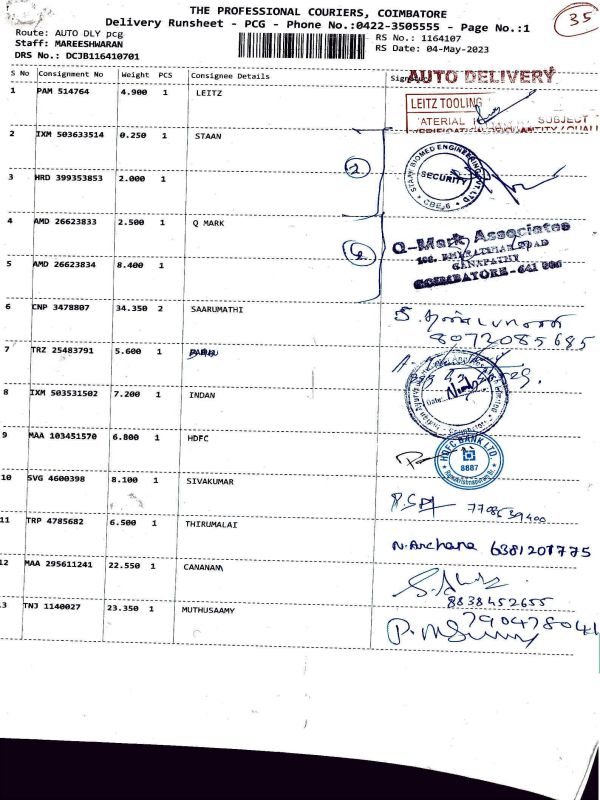 THE PROFESSIONAL COURIERS, COIMBATORE
Delivery Runsheet - PCG - Phone No.:0422-3505555 - Page No.:1
35
Route: AUTO DLY pcg
Staff: MAREESHWARAN
DRS No.: DCJB116410701
RS No.: 1164107
RS Date: 04-May-2023
S No Consignment No Weight PCS Consignee Details
AUTO DELIVERY
1 PAM 514764 4.900 1 LEITZ
LEITZ TOOLING
SUBJECT
2 IXM 503633514 0.250 1 STAAN
STAAN BIOMED ENGINEERING PVT LTD
SECURITY
CBE-6
2
3 HRD 399353853 2.000 1
4 AMD 26623833 2.500 1 Q MARK
Q-Mark Associates
GANAPATHY
COIMBATORE - 641 006
5 AMD 26623834 8.400 1
6 CNP 3478807 34.350 2 SAARUMATHI
8072085685
7 TRZ 25483791 5.600 1
8 IXM 503531502 7.200 1 INDAN
Date:
9 MAA 103451570 6.800 1 HDFC
HDFC BANK LTD.
8687
10 SVG 4600398 8.100 1 SIVAKUMAR
11 TRP 4785682 6.500 1 THIRUMALAI
N. Archana 6381207775
12 MAA 295611241 22.550 1 CANANAM
8838452655
3 TNJ 1140027 23.350 1 MUTHUSAAMY
790478041